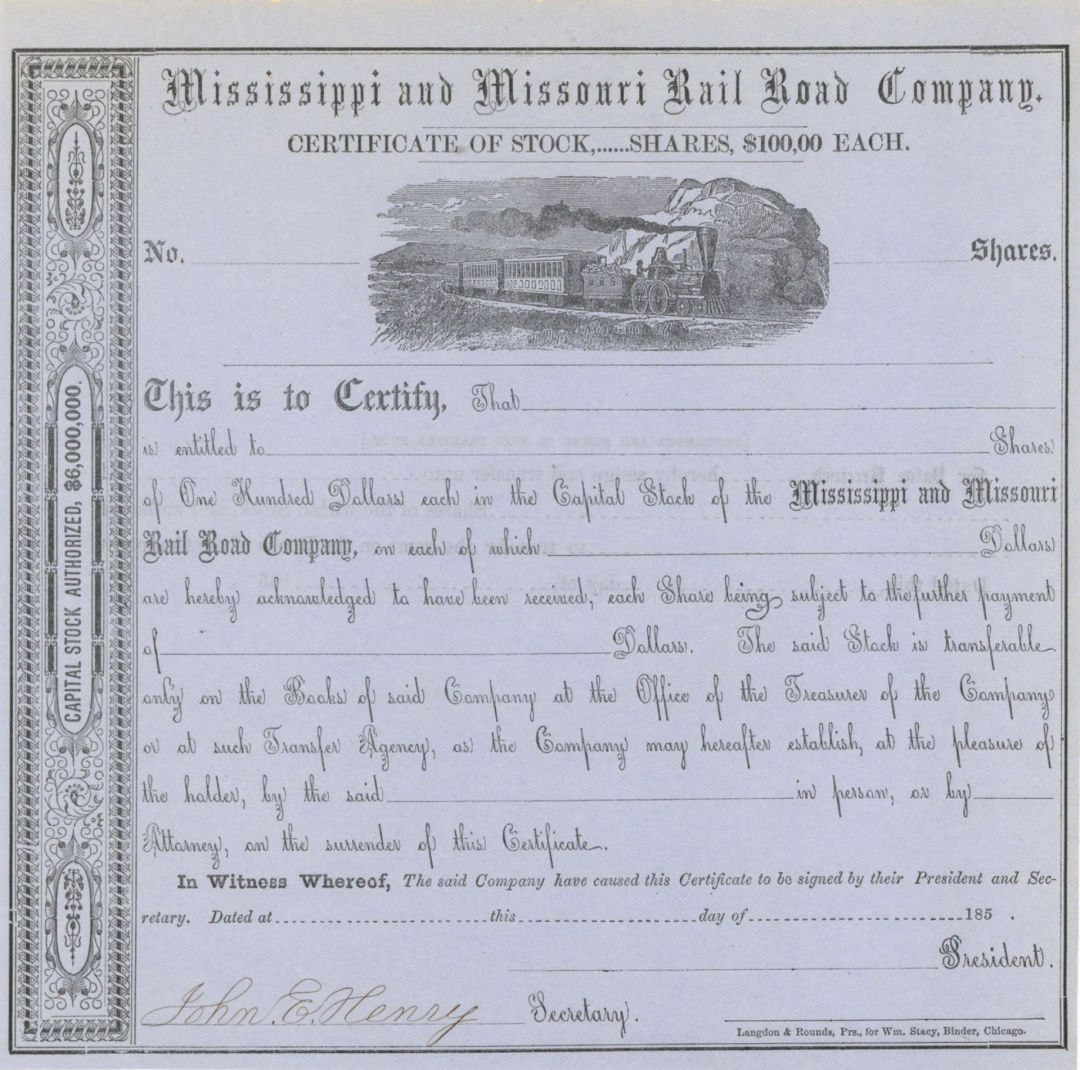 Mississippi and Missouri Rail Road Company.
CERTIFICATE OF STOCK,......SHARES, $100,00 EACH.
No.
Shares.
CAPITAL STOCK AUTHORIZED, $6,000,000.
This is to Certify, That
is entitled to Shares
of One Hundred Dollars each in the Capital Stock of the Mississippi and Missouri
Rail Road Company, on each of which Dollars
are hereby acknowledged to have been received, each Share being subject to the further payment
of Dollars. The said Stock is transferable
only on the Books of said Company at the Office of the Treasurer of the Company
or at such Transfer Agency, as the Company may hereafter establish, at the pleasure of
the holder, by the said in person, or by
Attorney, on the surrender of this Certificate.
In Witness Whereof, The said Company have caused this Certificate to be signed by their President and Sec-
retary. Dated at this day of 185 .
President.
John. E. Henry Secretary.
Langdon & Rounds, Prs., for Wm. Stacy, Binder, Chicago.